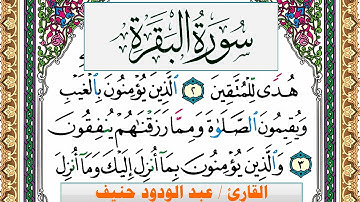 سُورَةُ الْبَقَرَةِ
هُدًى لِّلْمُتَّقِينَ ٢ ٱلَّذِينَ يُؤْمِنُونَ بِٱلْغَيْبِ
وَيُقِيمُونَ ٱلصَّلَوٰةَ وَمِمَّا رَزَقْنَـٰهُمْ يُنفِقُونَ
٣ وَٱلَّذِينَ يُؤْمِنُونَ بِمَآ أُنزِلَ إِلَيْكَ وَمَآ أُنزِلَ
القارئ / عبد الودود حنيف